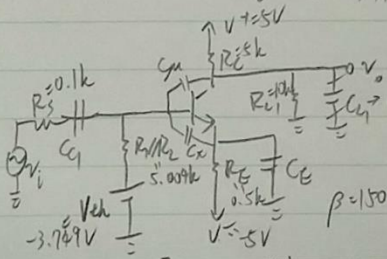 V+=5V
Cμ
Rc=5k
Rs=0.1k
Vo
RL1=10k
CL1→
Cc1
R1//R2
5.009k
Cπ
Vi
RE
0.5k
CE
Veh
-3.749V
V-=-5V
β=150